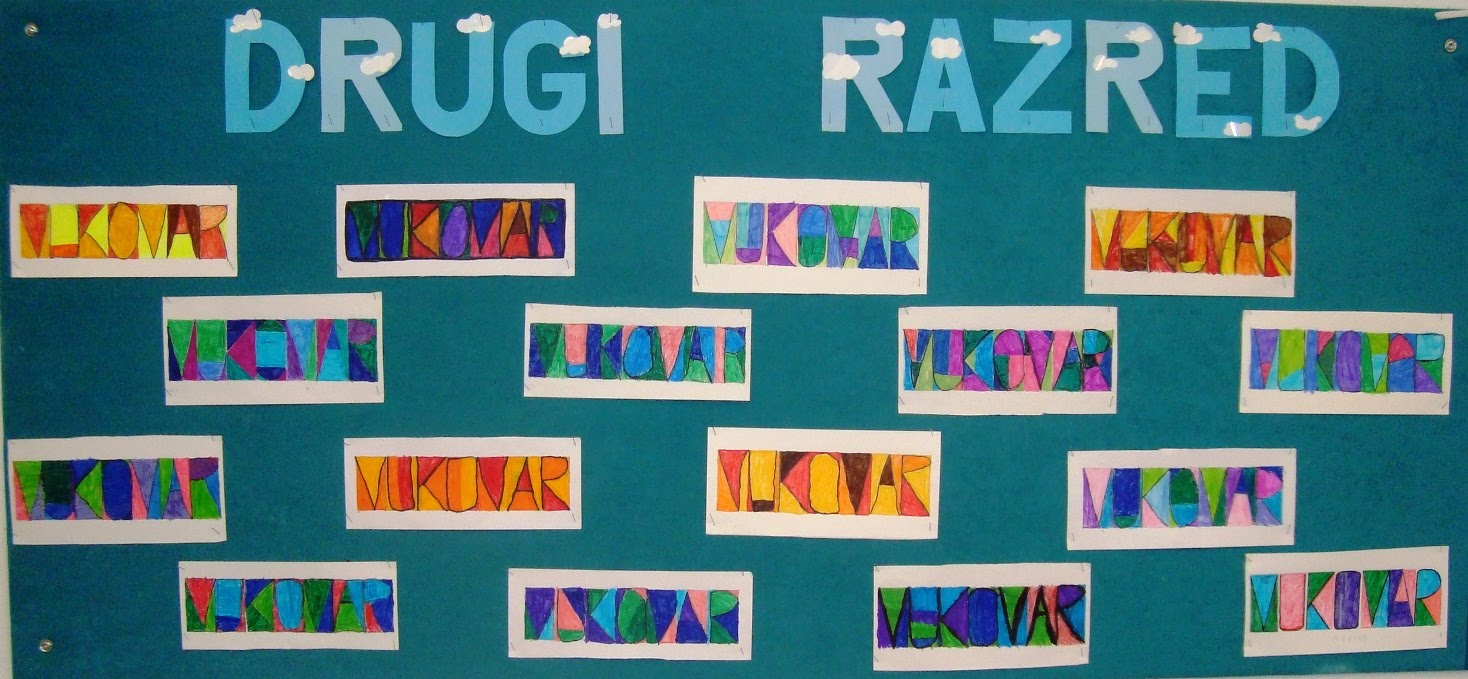 DRUGI RAZRED
VUKOVAR VUKOVAR VUKOVAR VUKOVAR
VUKOVAR VUKOVAR VUKOVAR VUKOVAR
VUKOVAR VUKOVAR VUKOVAR VUKOVAR
VUKOVAR VUKOVAR VUKOVAR VUKOVAR